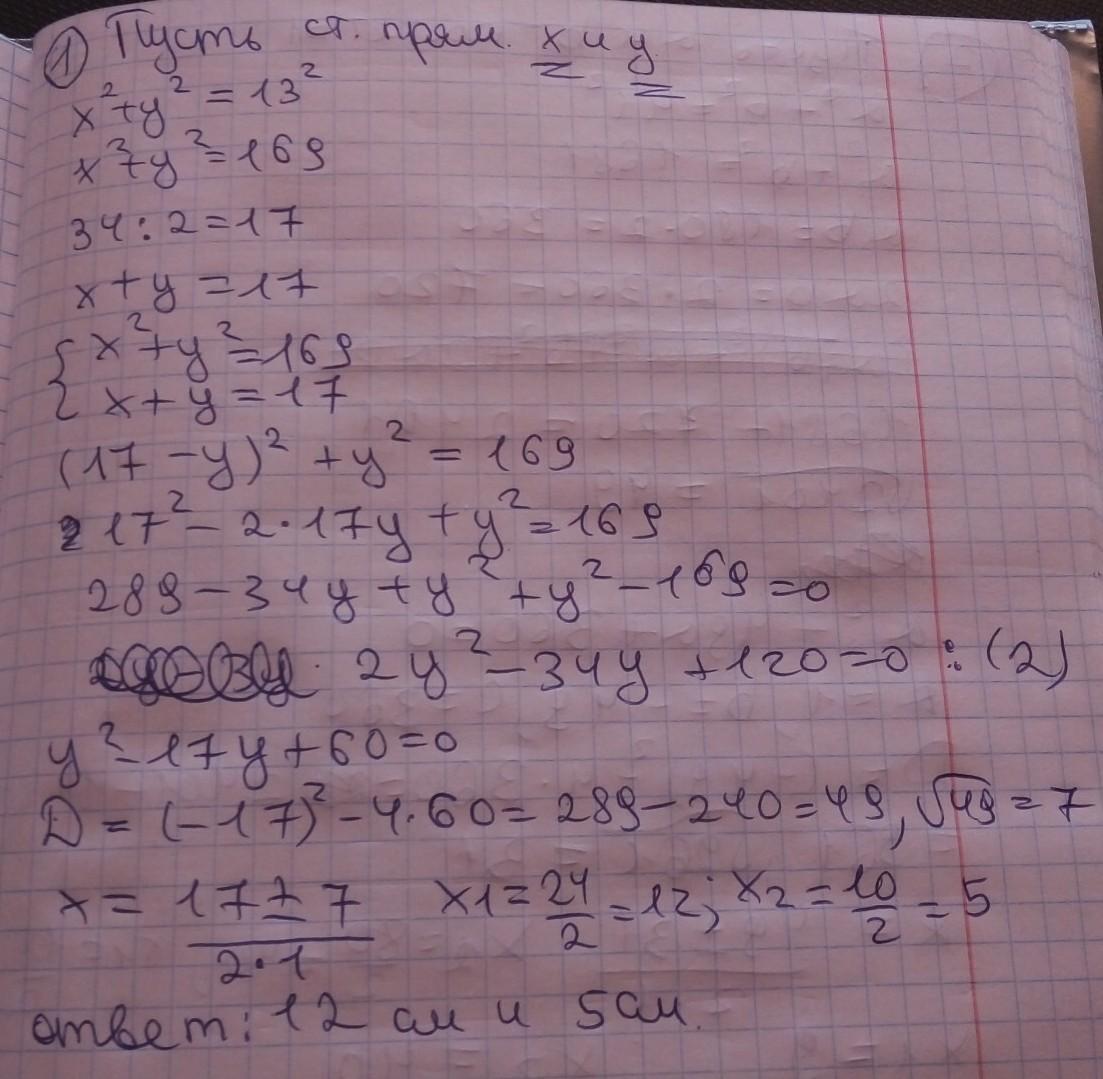 ① Пусть ст. прям. x и y
x²+y² = 13²
x²+y²=169
34:2=17
x+y=17
{ x²+y²=169
x+y=17
(17-y)²+y²=169
17²-2·17y+y²=169
289-34y+y²+y²-169=0
2y²-34y+120=0 :(2)
y²-17y+60=0
D=(-17)²-4·60=289-240=49, √49=7
x= (17±7)/(2·1) x1=24/2=12; x2=10/2=5
ответ: 12 см и 5см.